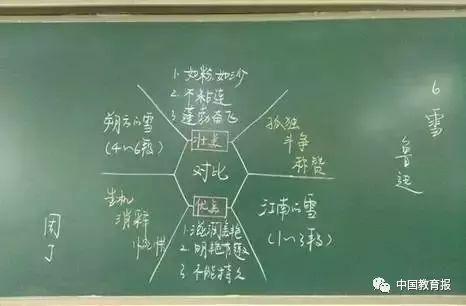 6 雪
鲁迅
1. 如粉,如沙
2. 不粘连
3. 蓬勃奋飞
壮美
朔方的雪
(4~6段)
孤独
斗争
称赞
对比
生机
消释
优美
江南的雪
(1~3段)
1. 滋润美艳
2. 明艳有趣
3. 不能持久
中国教育报